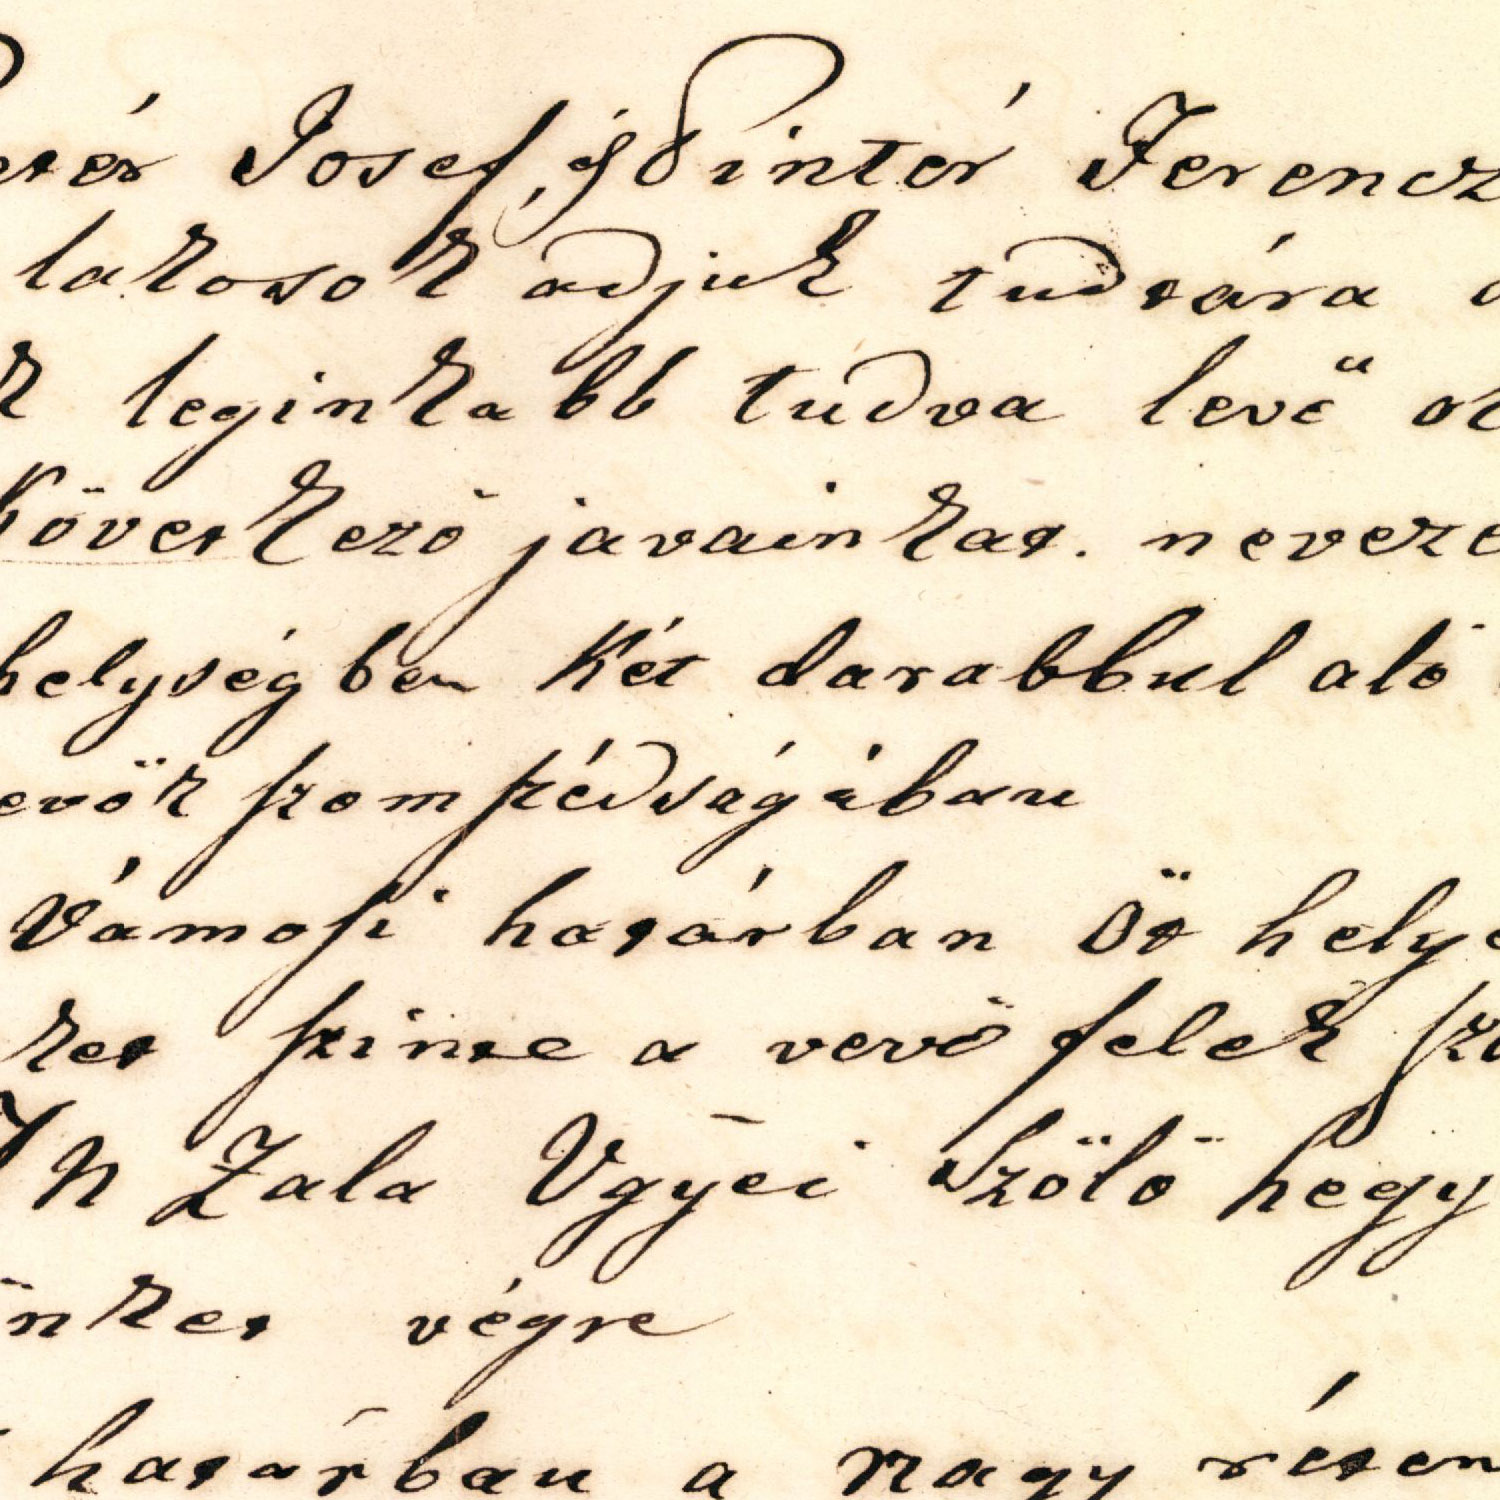 tér Josef, és Pintér Ferencz
lakosok adjuk tudtára
k leginkabb tudva levő
következö javainkat. neveze
helységben két darabbul aló
evök szomszédságában
Vámosi határban Öt helye
ket szinte a vevö felek sz
IN Zala Ugyei Szölö hegy
inket végre
hatarban a nagy réten